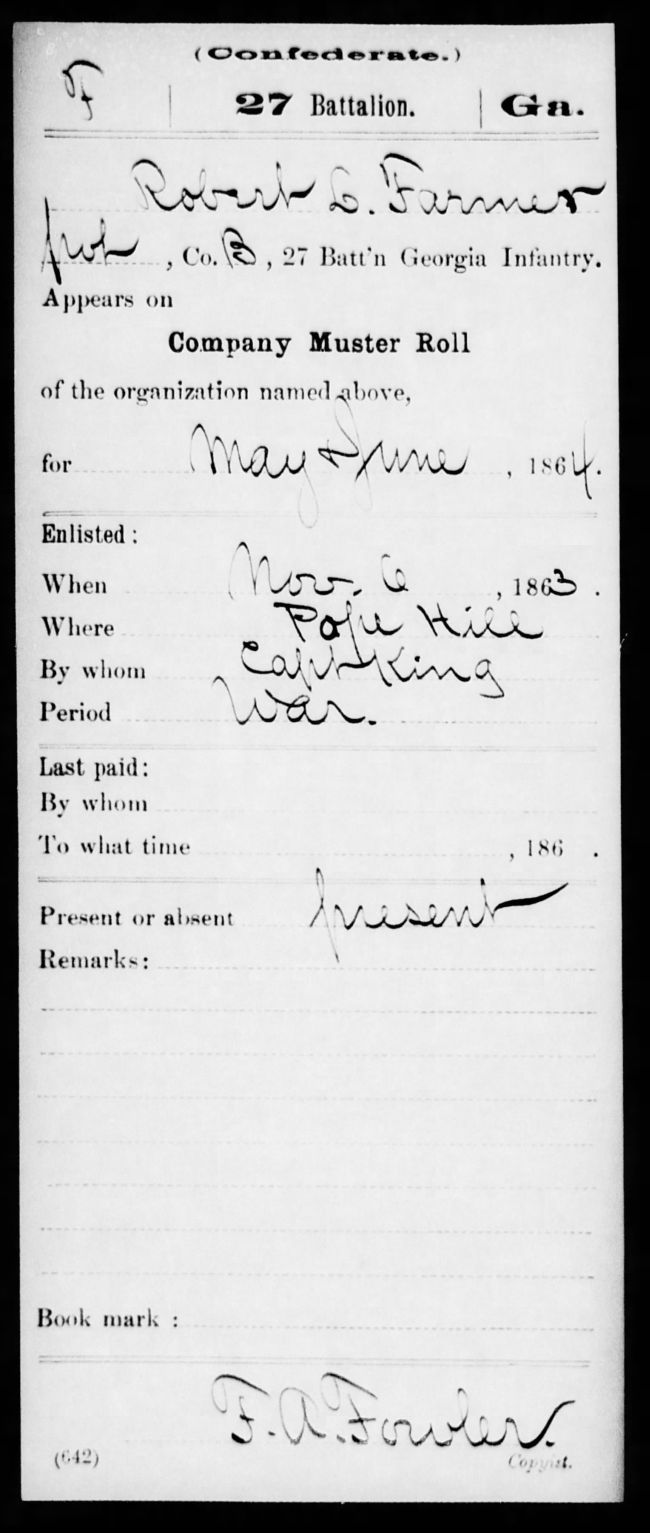 (Confederate.)
F | 27 Battalion. | Ga.
Robert L. Farmer
Pvt, Co. B, 27 Batt'n Georgia Infantry.
Appears on
Company Muster Roll
of the organization named above,
for May & June, 1864.
Enlisted:
When Nov. 6, 1863.
Where Pope Hill
By whom Capt King
Period War.
Last paid:
By whom
To what time , 186 .
Present or absent present
Remarks:
Book mark:
F. A. Fowler.
(642) Copyist.